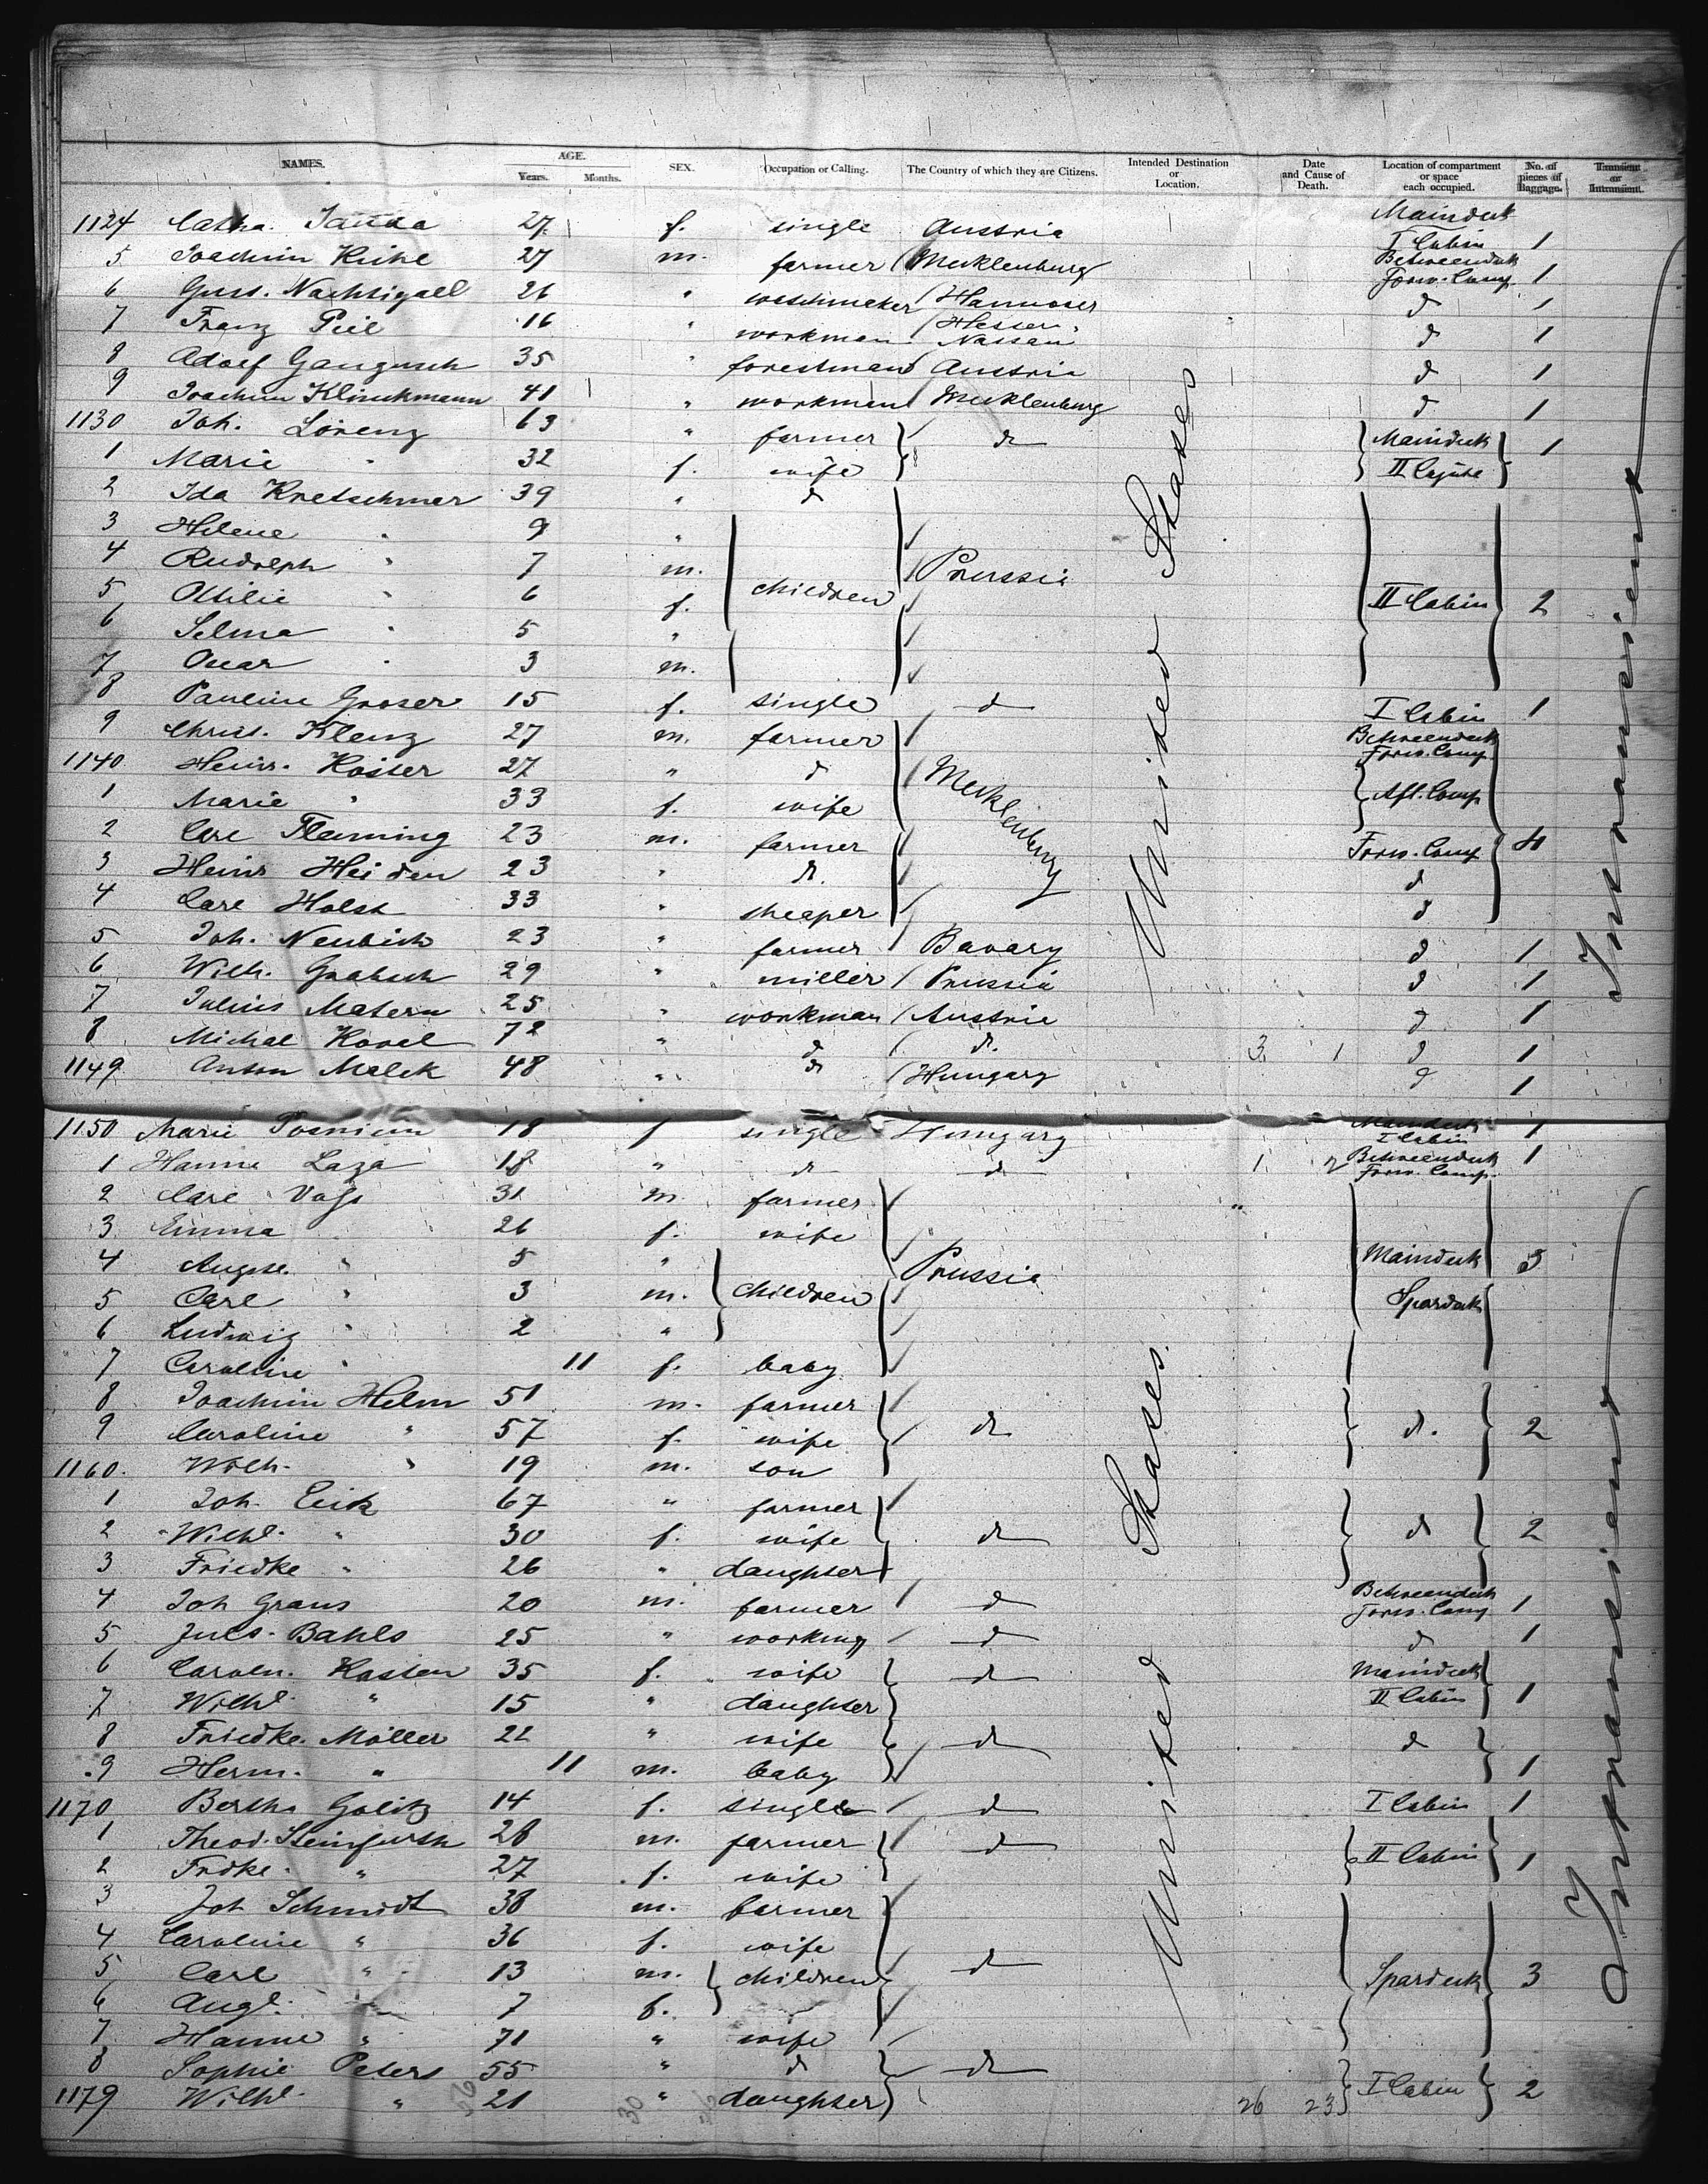 NAMES. AGE. Years. Months. SEX. Occupation or Calling. The Country of which they are Citizens. Intended Destination or Location. Date and Cause of Death. Location of compartment or space each occupied. No. of pieces of Baggage. Transient or Intransient.
1124 Catha. 27 f. single Austria Maindeck I Cabin 1
5 Joachim 27 m. farmer Mecklenburg Betweendeck Forw. Comp. 1
6 Gust. Nachtigall 26 " Hannover d 1
7 Franz Piel 16 " workman Hessen Nassau d 1
8 Adolf 35 " forestman Austria d 1
9 Joachim Klinckmann 41 " workman Mecklenburg d 1
1130 Joh. Lorenz 63 " farmer d Maindeck 1
1 Marie " 32 f. wife II Cajüte
2 Ida Kretschmer 39 " d
3 Helene " 9 "
4 Rudolph " 7 m. Prussia
5 Ottilie " 6 f. children II Cabin 2
6 Selma " 5 "
7 " 3 m.
8 Pauline Groser 15 f. single d I Cabin 1
9 Christ. Klenz 27 m. farmer Betweendeck Forw. Comp.
1140 Heinr. Köster 27 " d Mecklenburg
1 Marie " 33 f. wife Aft. Comp
2 Carl Flemming 23 m. farmer Forw. Comp 4
3 Heinr Heiden 23 " d. d
4 Carl Holst 33 " d
5 Joh. 23 " farmer Bavary d 1
6 Wilh. 29 " miller Prussia d 1
7 Julius Matern 25 " workman Austria d 1
8 Michal 72 " d d. 3 1 d 1
1149 Anton Malek 48 " d Hungary d 1
1150 Marie 18 f single Hungary Maindeck I Cabin 1
1 Hanna Laza 18 " d d 1 Betweendeck Forw. Comp. 1
2 Carl 31 m. farmer "
3 Emma 26 f. wife
4 Auguste " 5 " Prussia Maindeck
5 Carl " 3 m. children Spardeck
6 Ludwig " 2 "
7 Caroline " 11 f. baby
8 Joachim Helm 51 m. farmer
9 Caroline " 57 f. wife d d. 2
1160. Wilh. " 19 m. son
1 Joh. 67 " farmer
2 Wilhl. " 30 f. wife d d 2
3 Friedke " 26 " daughter
4 Joh 20 m. farmer d Betweendeck Forw. Comp 1
5 Juls. Bahls 25 " d d 1
6 Caroln. 35 f. wife d Maindeck
7 Wilhl. " 15 " daughter II Cabin 1
8 Friedke. Möller 22 " wife d d
9 Herm. " 11 m. baby 1
1170 Bertha 14 f. single d I Cabin 1
1 Theod. Steinfurth 28 m. farmer d
2 Frdke. " 27 f. wife II Cabin 1
3 Joh Schmidt 38 m. farmer
4 Caroline " 36 f. wife
5 Carl " 13 m. children d Spardeck 3
6 " 7 f.
7 Hanne " 71 " wife
8 Sophie Peters 55 " d d
1179 Wilhl. " 21 " daughter 26 23 I Cabin 2
United States
United States.
Intransient
Intransient